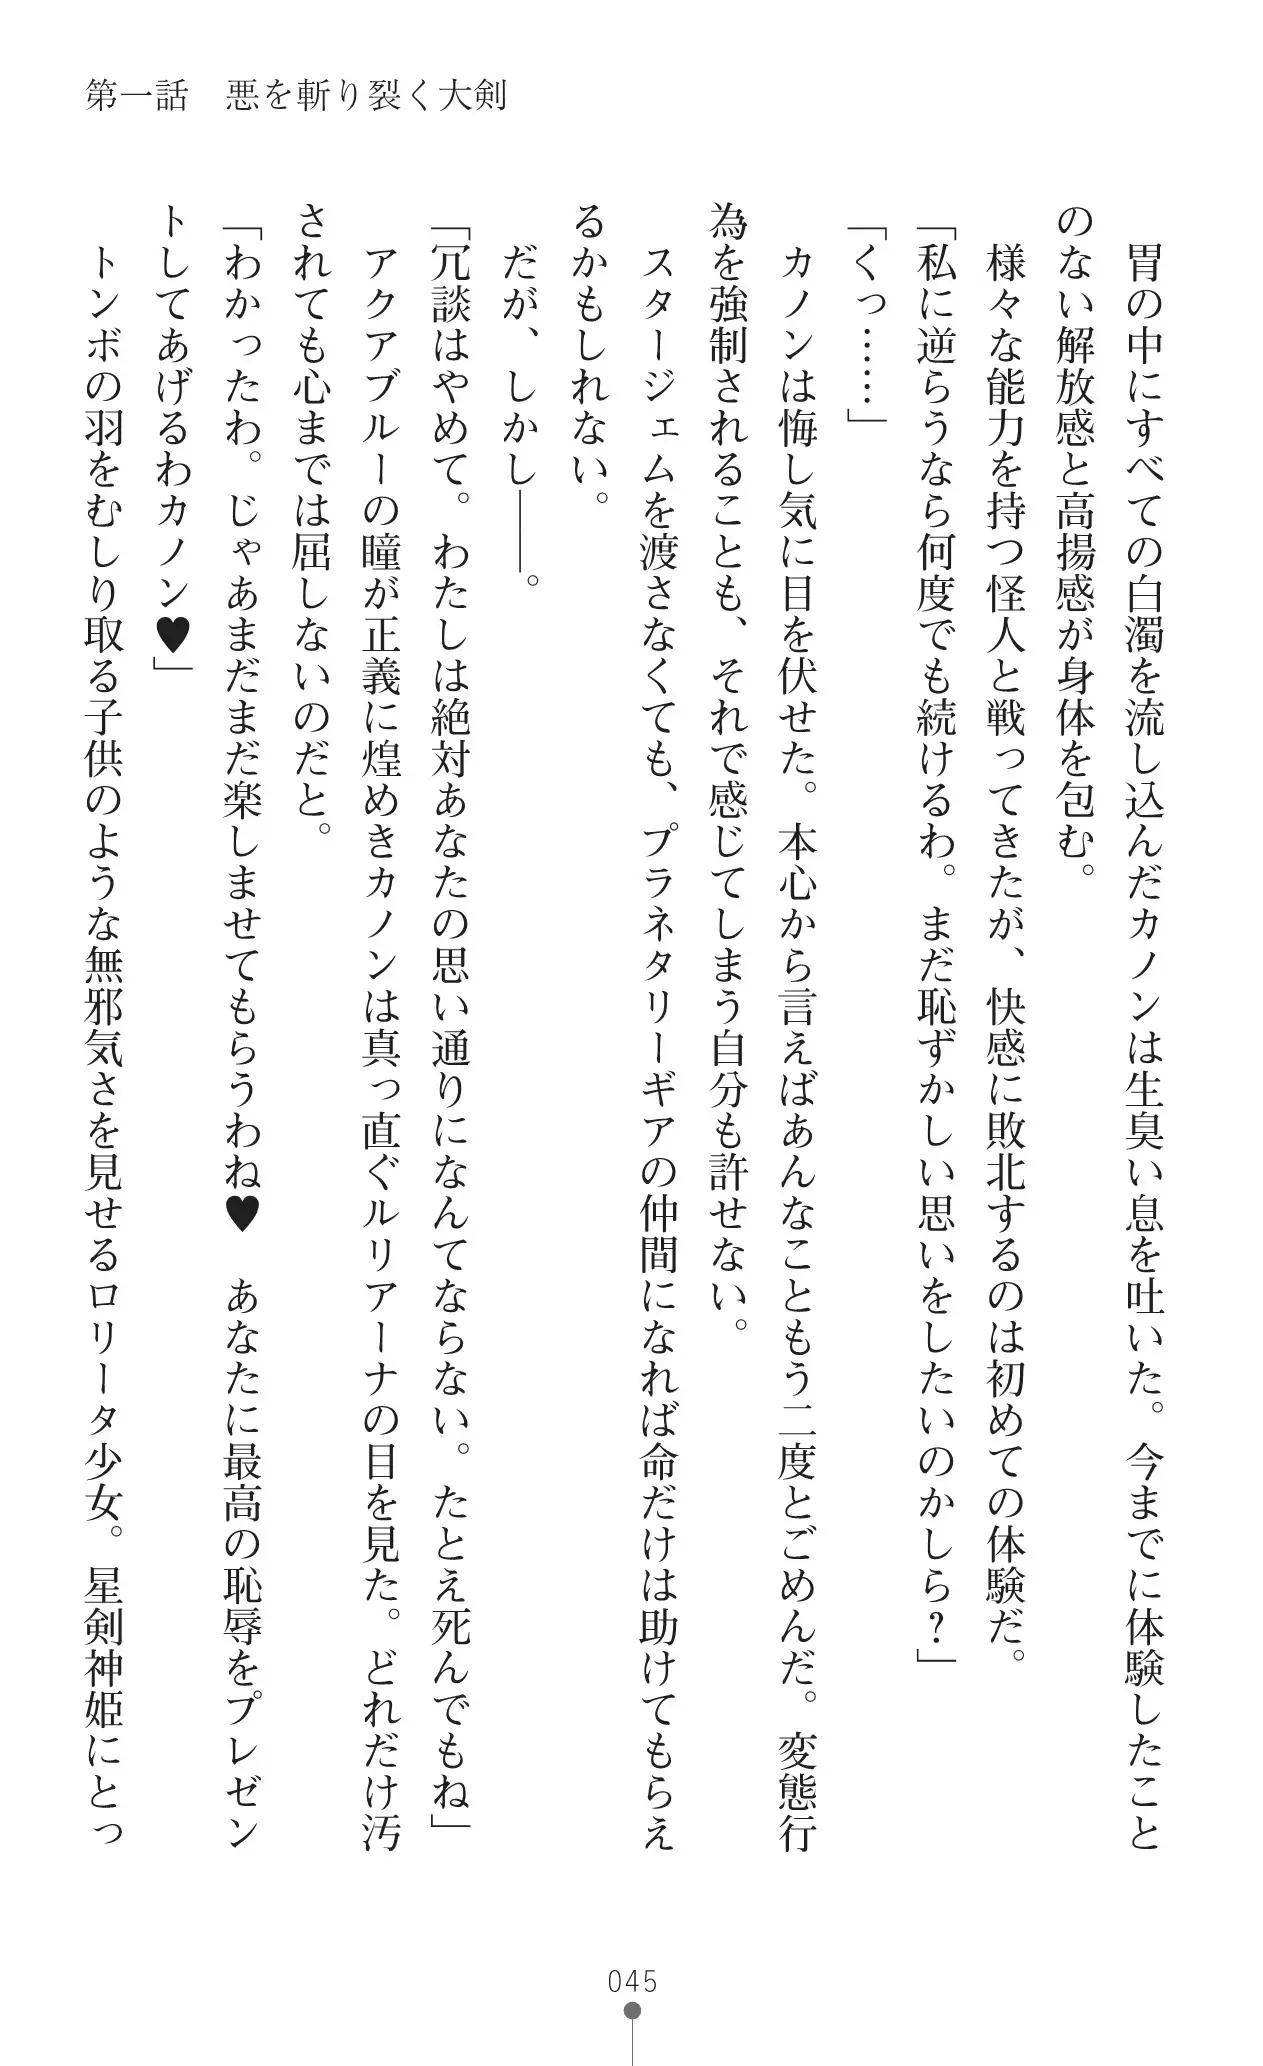 第一話　悪を斬り裂く大剣
　胃の中にすべての白濁を流し込んだカノンは生臭い息を吐いた。今までに体験したこと
のない解放感と高揚感が身体を包む。
　様々な能力を持つ怪人と戦ってきたが、快感に敗北するのは初めての体験だ。
「私に逆らうなら何度でも続けるわ。まだ恥ずかしい思いをしたいのかしら？」
「くっ……」
　カノンは悔し気に目を伏せた。本心から言えばあんなこともう二度とごめんだ。変態行
為を強制されることも、それで感じてしまう自分も許せない。
　スタージェムを渡さなくても、プラネタリーギアの仲間になれば命だけは助けてもらえ
るかもしれない。
　だが、しかし――。
「冗談はやめて。わたしは絶対あなたの思い通りになんてならない。たとえ死んでもね」
　アクアブルーの瞳が正義に煌めきカノンは真っ直ぐルリアーナの目を見た。どれだけ汚
されても心までは屈しないのだと。
「わかったわ。じゃあまだまだ楽しませてもらうわね♥　あなたに最高の恥辱をプレゼン
トしてあげるわカノン♥」
　トンボの羽をむしり取る子供のような無邪気さを見せるロリータ少女。星剣神姫にとっ
045